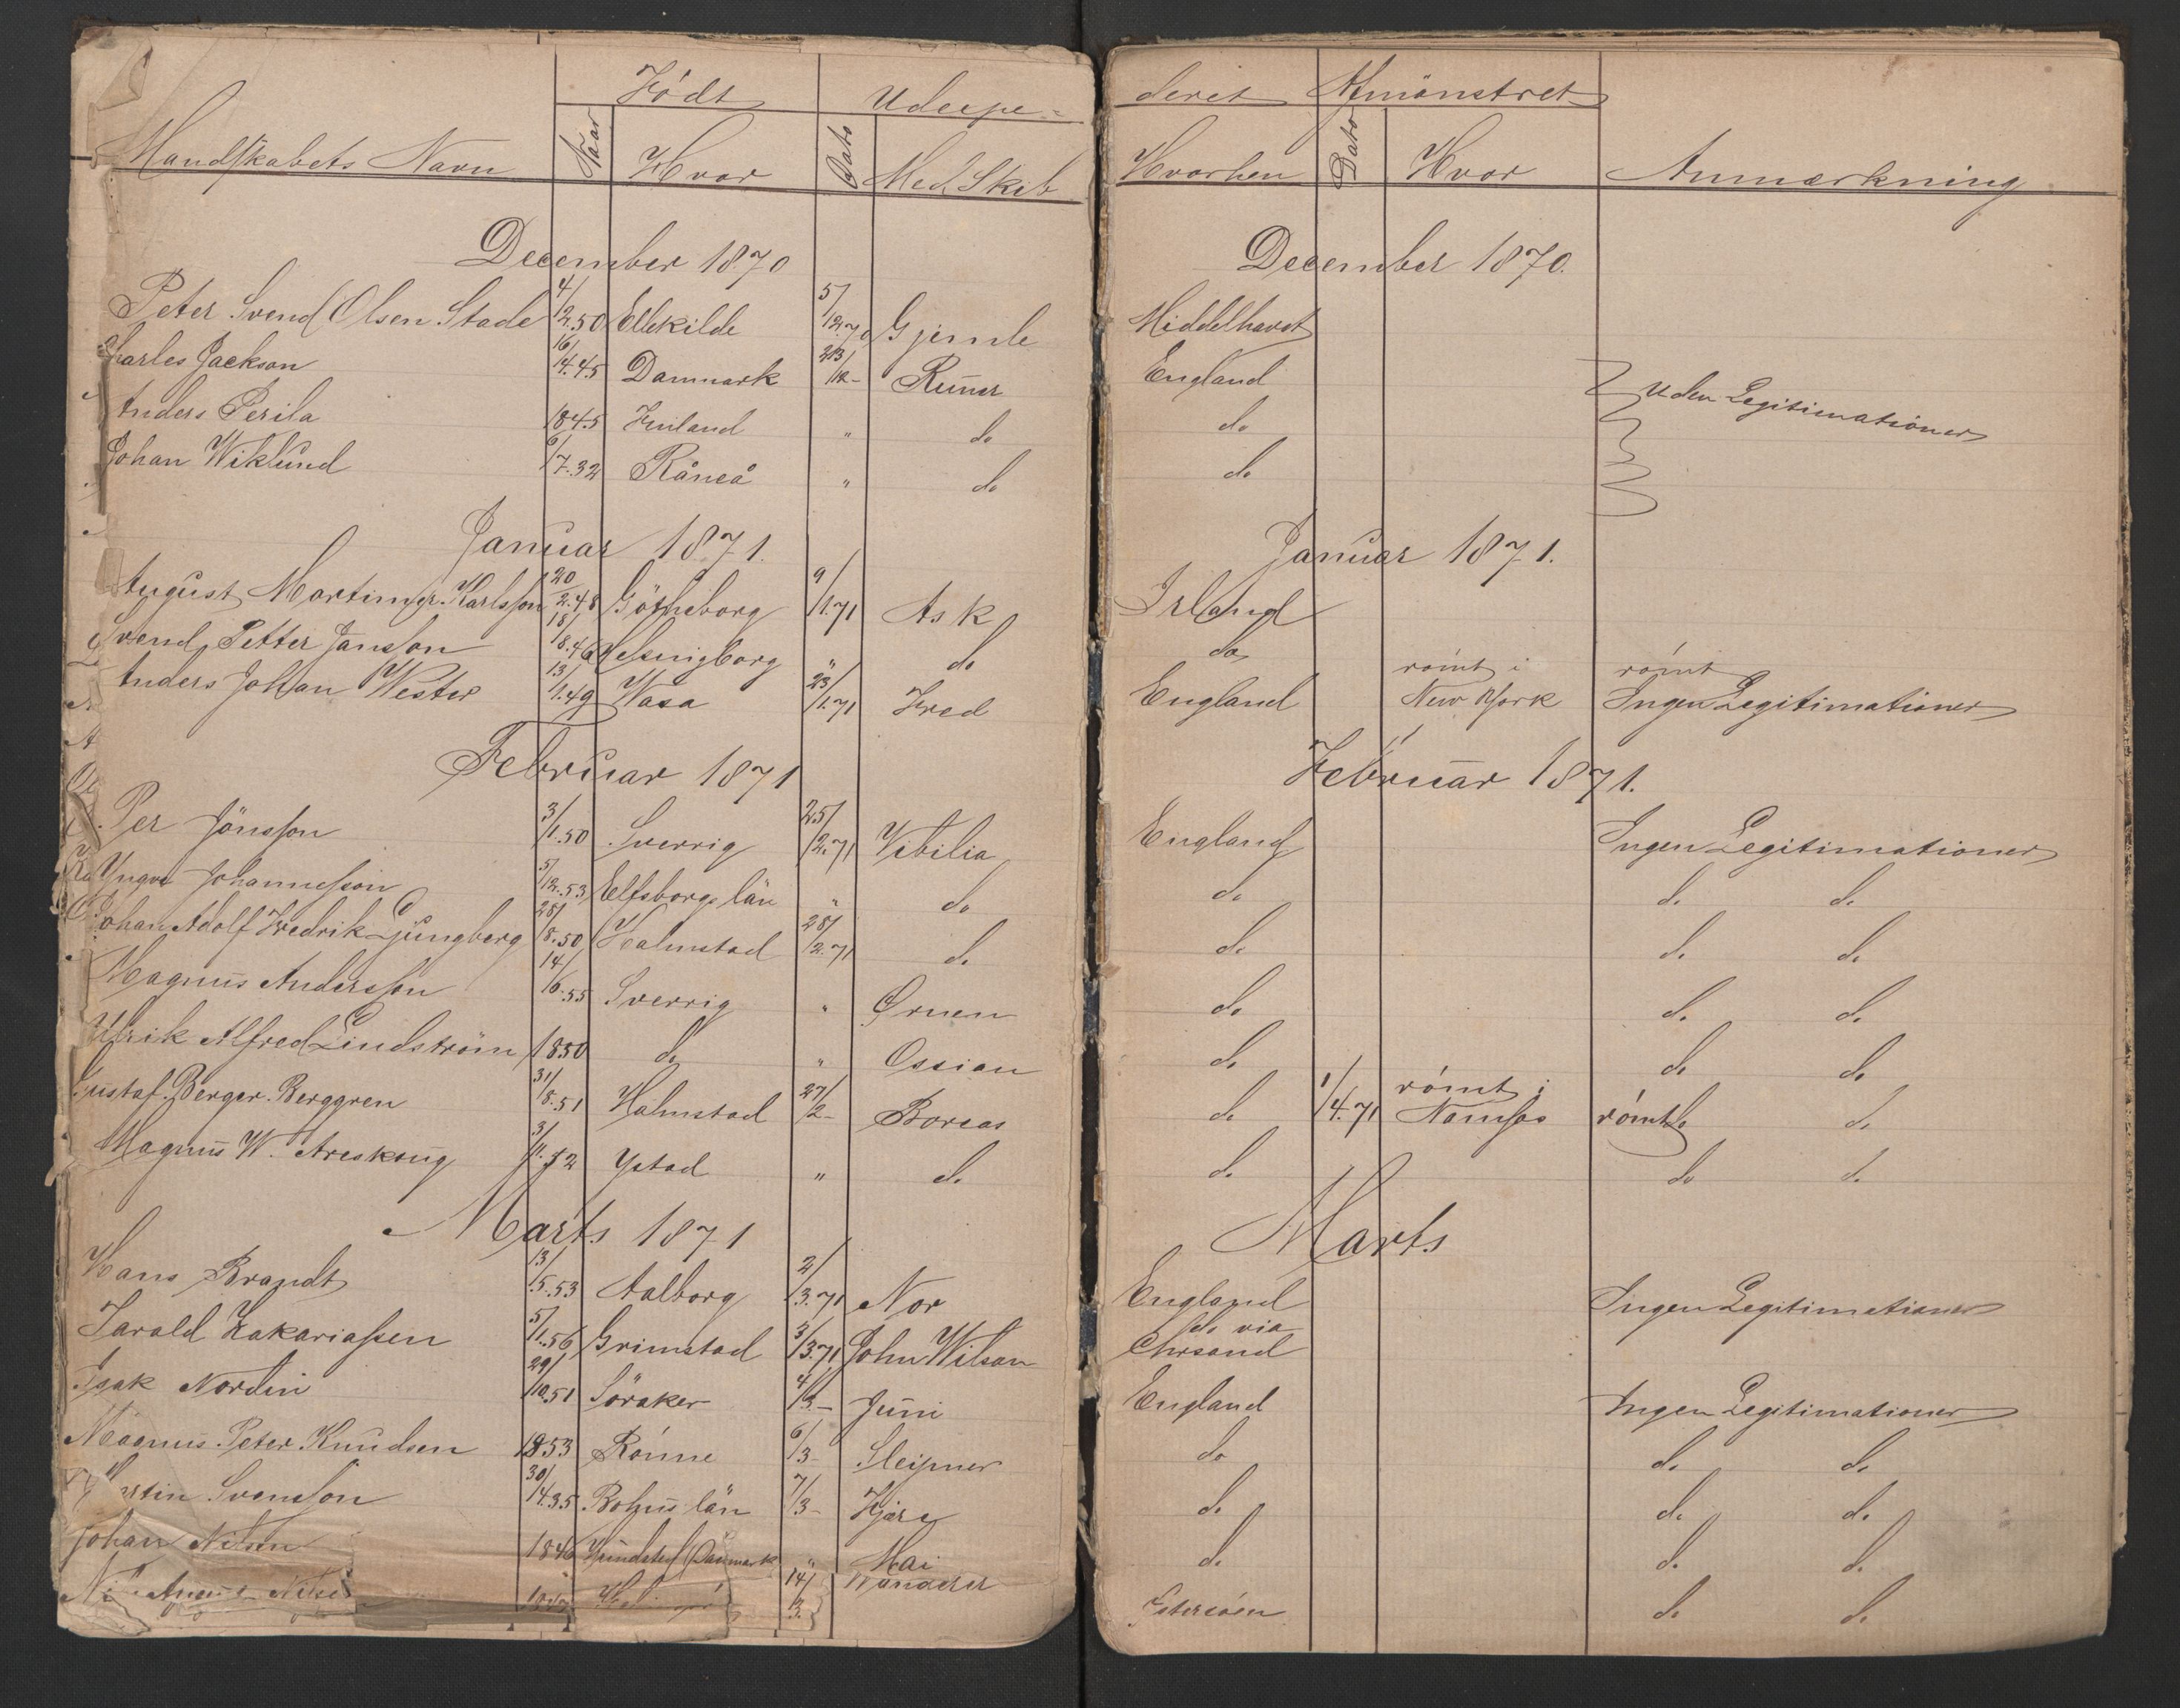 Født Udexpe=
Mandskabets Navn Naar Hvor Dato Med Skib
December 1870
Peter Svend Olsen Stade 4/12.50 Ellekilde 5/12.70 Gjemle
Charles Jackson 16/4.45 Danmark 23/12- Runer
Anders Perila 1845 Finland " do
Johan Wiklund 6/7.32 Råneå " do
Januar 1871.
August Martinger. Karlsson 20/2.48 Götheborg 9/1.71 Ask
Svend Petter Jansson 18/8.46 Helsingborg " do
Anders Johan Wester 13/1.49 Wasa 23/1.71 Fred
Februar 1871
Per Jönsson 3/1.50 Sverrig 25/2.71 Vibilia
Yngve Johannesson 5/12.53 Elfsborgs län " do
Johan Adolf Fredrik Ljungberg 28/8.50 Halmstad 28/2.71 do
Magnus Andersson 14/6.55 Sverrig " Ørnen
Ulrik Alfred Lindström 1850 do " Ossian
Gustaf. Berger. Berggren 31/8.51 Halmstad 27/2- Boreas
Magnus W. Areskoug 3/11.52 Ystad " do
Marts 1871
Hans Brandt 13/5.53 Aalborg 2/3.71 Nor
Tarald Zakariassen 5/11.56 Grimstad 3/3.71 John Wilson
Isak Nordin 29/10.51 Söraker 4/3- Juni
Magnus Peter Knudsen 1853 Rönne 6/3- Sleipner
Svensson 30/4.35 Bohus län 7/3- Hjørg
Johan Nilsen 1846 Danmark " Mai
14/3. Wanderer
deret Afmönstret
Hvorhen Dato Hvor Anmærkning
December 1870.
Middelhavet
England Uden Legitimationer
do
do
Januar 1871.
Irland
do
England römt i New York römt Ingen Legitimationer
Februar 1871.
England Ingen Legitimationer
do do do
do do do
do do do
do do do
do 1/4.71 römt i Namsos römt do do
do do do
Marts
England Ingen Legitimationer
do via Chrsand
England Ingen Legitimationer
do do do
do do do
do do do
Østersöen do do